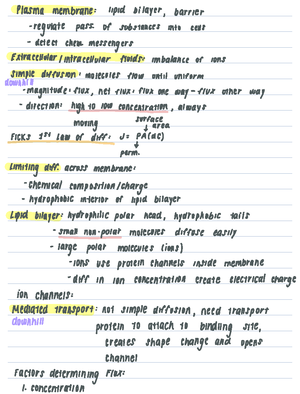 Plasma membrane: lipid bilayer, barrier
- regulate pass. of substances into cells
- detect chem messengers
Extracellular/intracellular fluids: imbalance of ions
simple diffusion: molecules flow until uniform
downhill
- magnitude: flux, net flux: flux one way - flux other way
- direction: high to low concentration, always
moving
surface
area
FICKS 1st Law of diff: J = PA(dC)
perm.
Limiting diff. across membrane:
- chemical composition/charge
- hydrophobic interior of lipid bilayer
Lipid bilayer: hydrophilic polar head, hydrophobic tails
- small non-polar molecules diffuse easily
- large polar molecules (ions)
- ions use protein channels inside membrane
- diff in ion concentration create electrical charge
ion channels:
Mediated transport: not simple diffusion, need transport
downhill
protein to attach to binding site,
creates shape change and opens
channel
Factors determining Flux:
1. concentration